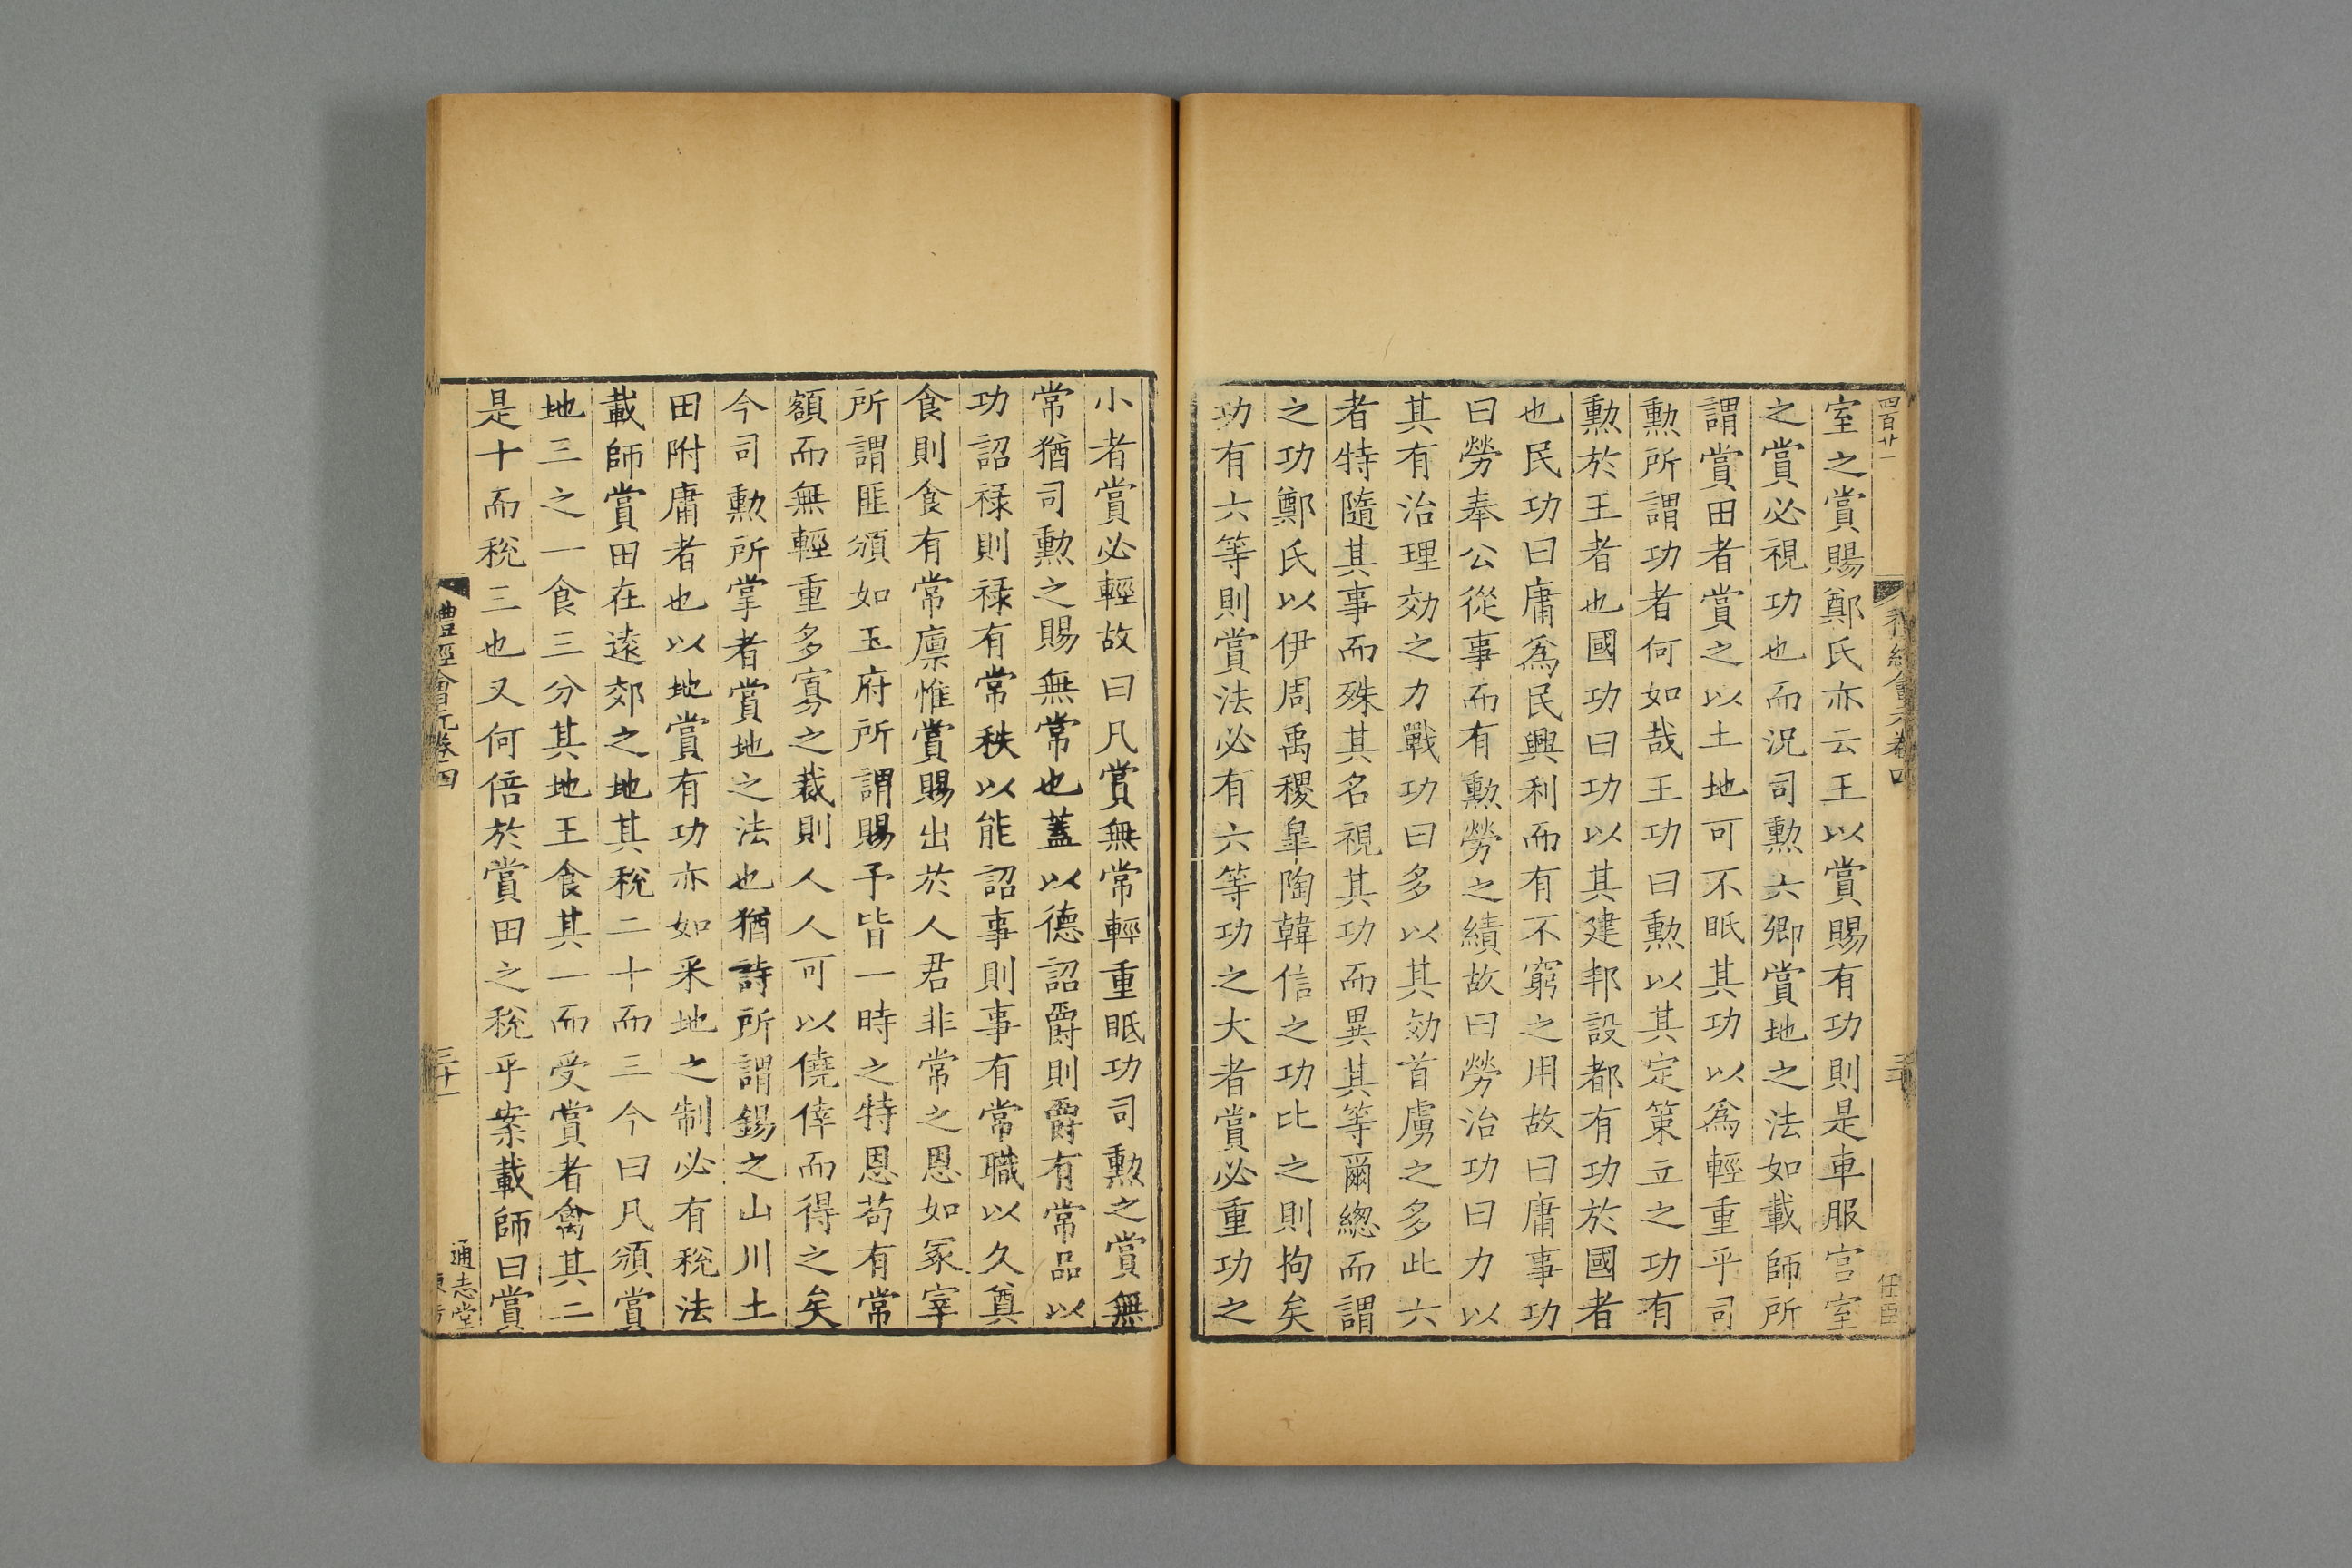 四百廿一
禮經會元卷四
三十
任臣
室之賞賜鄭氏亦云王以賞賜有功則是車服宫室
之賞必視功也而況司勲六卿賞地之法如載師所
謂賞田者賞之以土地可不眂其功以爲輕重乎司
勲所謂功者何如哉王功曰勲以其定策立之功有
勲於王者也國功曰功以其建邦設都有功於國者
也民功曰庸爲民興利而有不窮之用故曰庸事功
曰勞奉公從事而有勲勞之績故曰勞治功曰力以
其有治理効之力戰功曰多以其効首虜之多此六
者特隨其事而殊其名視其功而異其等爾緫而謂
之功鄭氏以伊周禹稷臯陶韓信之功比之則拘矣
功有六等則賞法必有六等功之大者賞必重功之
小者賞必輕故曰凡賞無常輕重眂功司勲之賞無
常猶司勲之賜無常也蓋以德詔爵則爵有常品以
功詔禄則禄有常秩以能詔事則事有常職以久奠
食則食有常廩惟賞賜出於人君非常之恩如冢宰
所謂匪頒如玉府所謂賜予皆一時之特恩苟有常
額而無輕重多寡之裁則人人可以僥倖而得之矣
今司勲所掌者賞地之法也猶詩所謂錫之山川土
田附庸者也以地賞有功亦如采地之制必有稅法
載師賞田在逺郊之地其稅二十而三今曰凡頒賞
地三之一食三分其地王食其一而受賞者禽其二
是十而稅三也又何倍於賞田之稅乎案載師曰賞
禮經會元卷四
三十一
通志堂